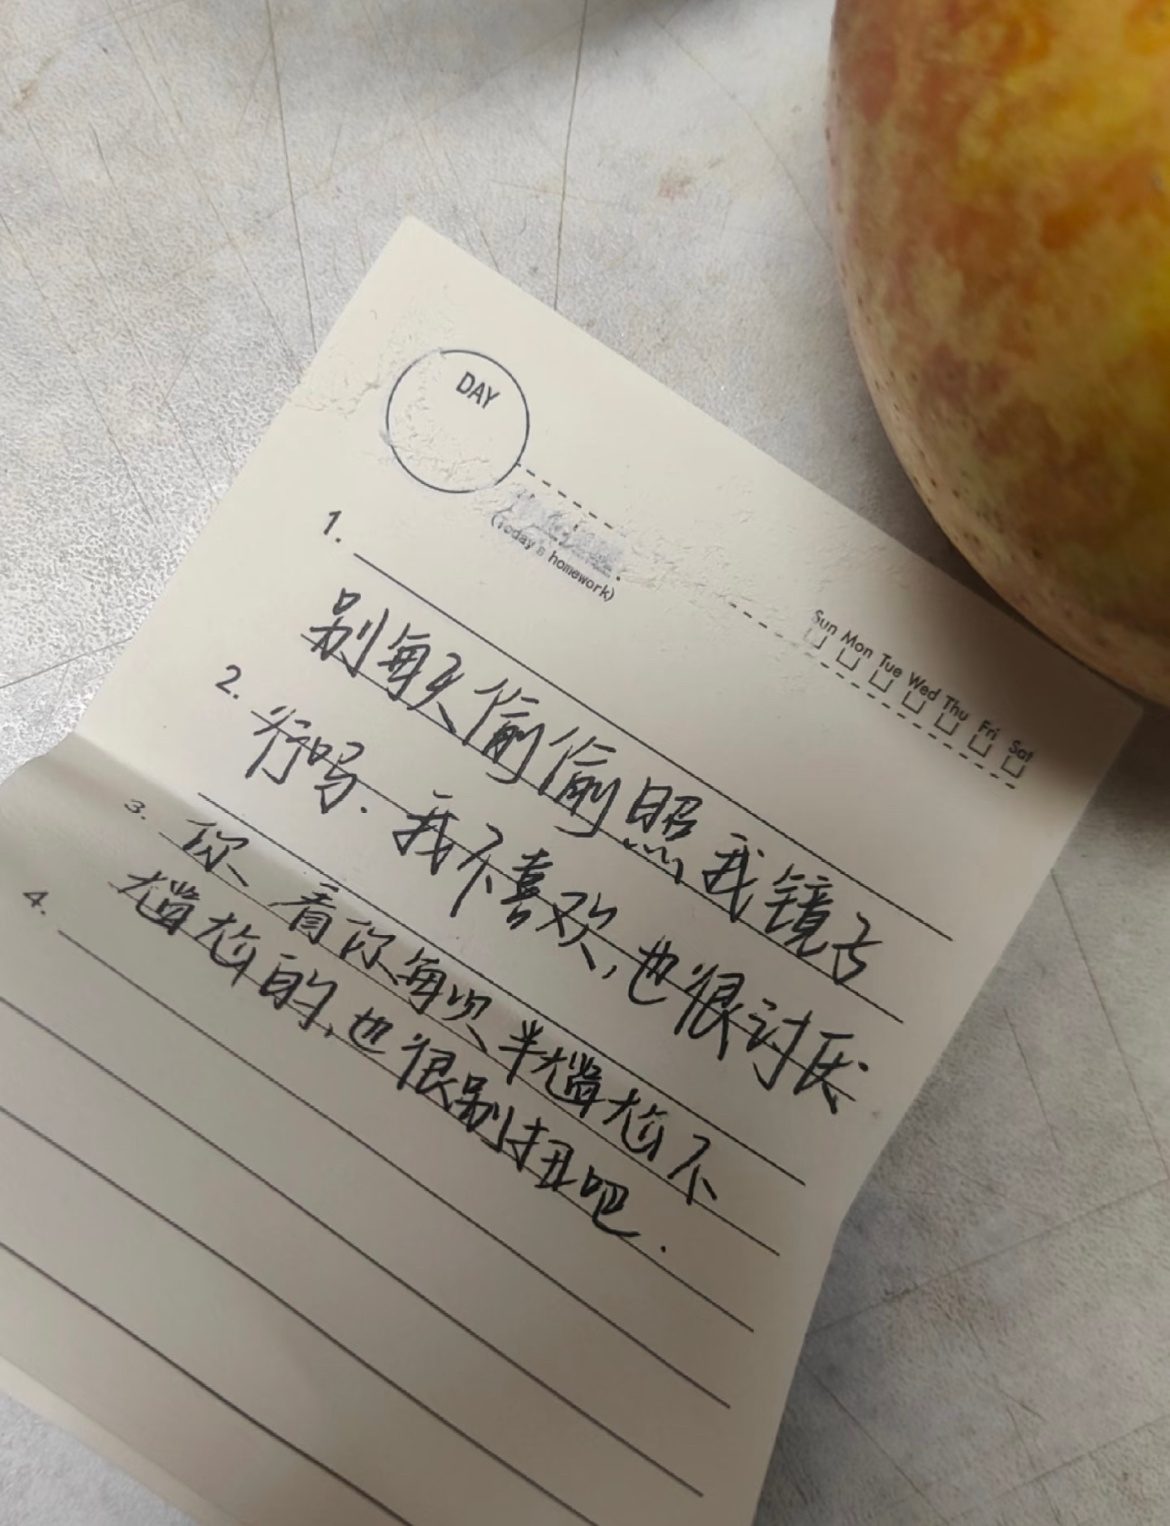 DAY
(Today's homework)
Sun Mon Tue Wed Thu Fri Sat
1.
别每天偷偷照我镜子
2.
行吗.我不喜欢,也很讨厌
3.
你、看你每次半尴尬不
4.
尴尬的,也很别扭吧.